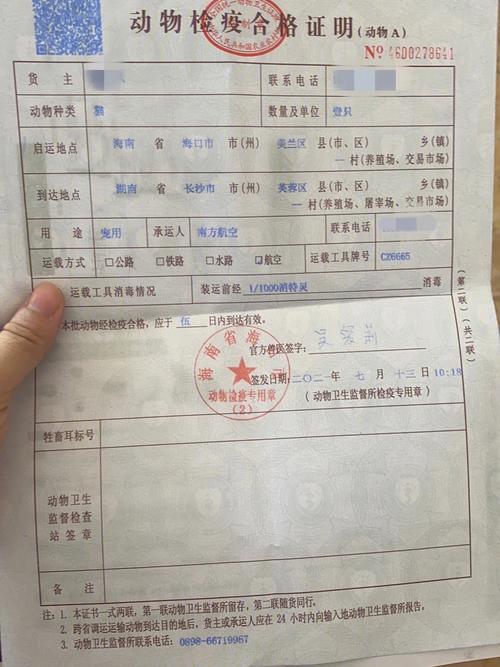 动物检疫合格证明(动物A)
中华人民共和国农业农村部
№ 4600278641
货 主 联系电话
动物种类 猫 数量及单位 壹只
启运地点 海南 省 海口市 市(州) 美兰区 县(市、区) 乡(镇)
村(养殖场、交易市场)
到达地点 湖南 省 长沙市 市(州) 芙蓉区 县(市、区) 乡(镇)
村(养殖场、屠宰场、交易市场)
用 途 宠用 承运人 南方航空 联系电话
运载方式 □公路 □铁路 □水路 ☑航空 运载工具牌号 CZ6665
运载工具消毒情况 装运前经 1/1000消特灵 消毒
本批动物经检疫合格,应于 伍 日内到达有效。
官方兽医签字:
签发日期:二〇二一年 七 月 十三 日 10:18
(动物卫生监督所检疫专用章)
海南省海
动物检疫专用章
(2)
(第二联)(共二联)
牲畜耳标号
动物卫生
监督检查
站签章
备 注
注:1. 本证书一式两联,第一联动物卫生监督所留存,第二联随货同行。
2. 跨省调运动物到达目的地后,货主或承运人应在 24 小时内向输入地动物卫生监督所报告。
3. 动物卫生监督所联系电话:0898-66719967